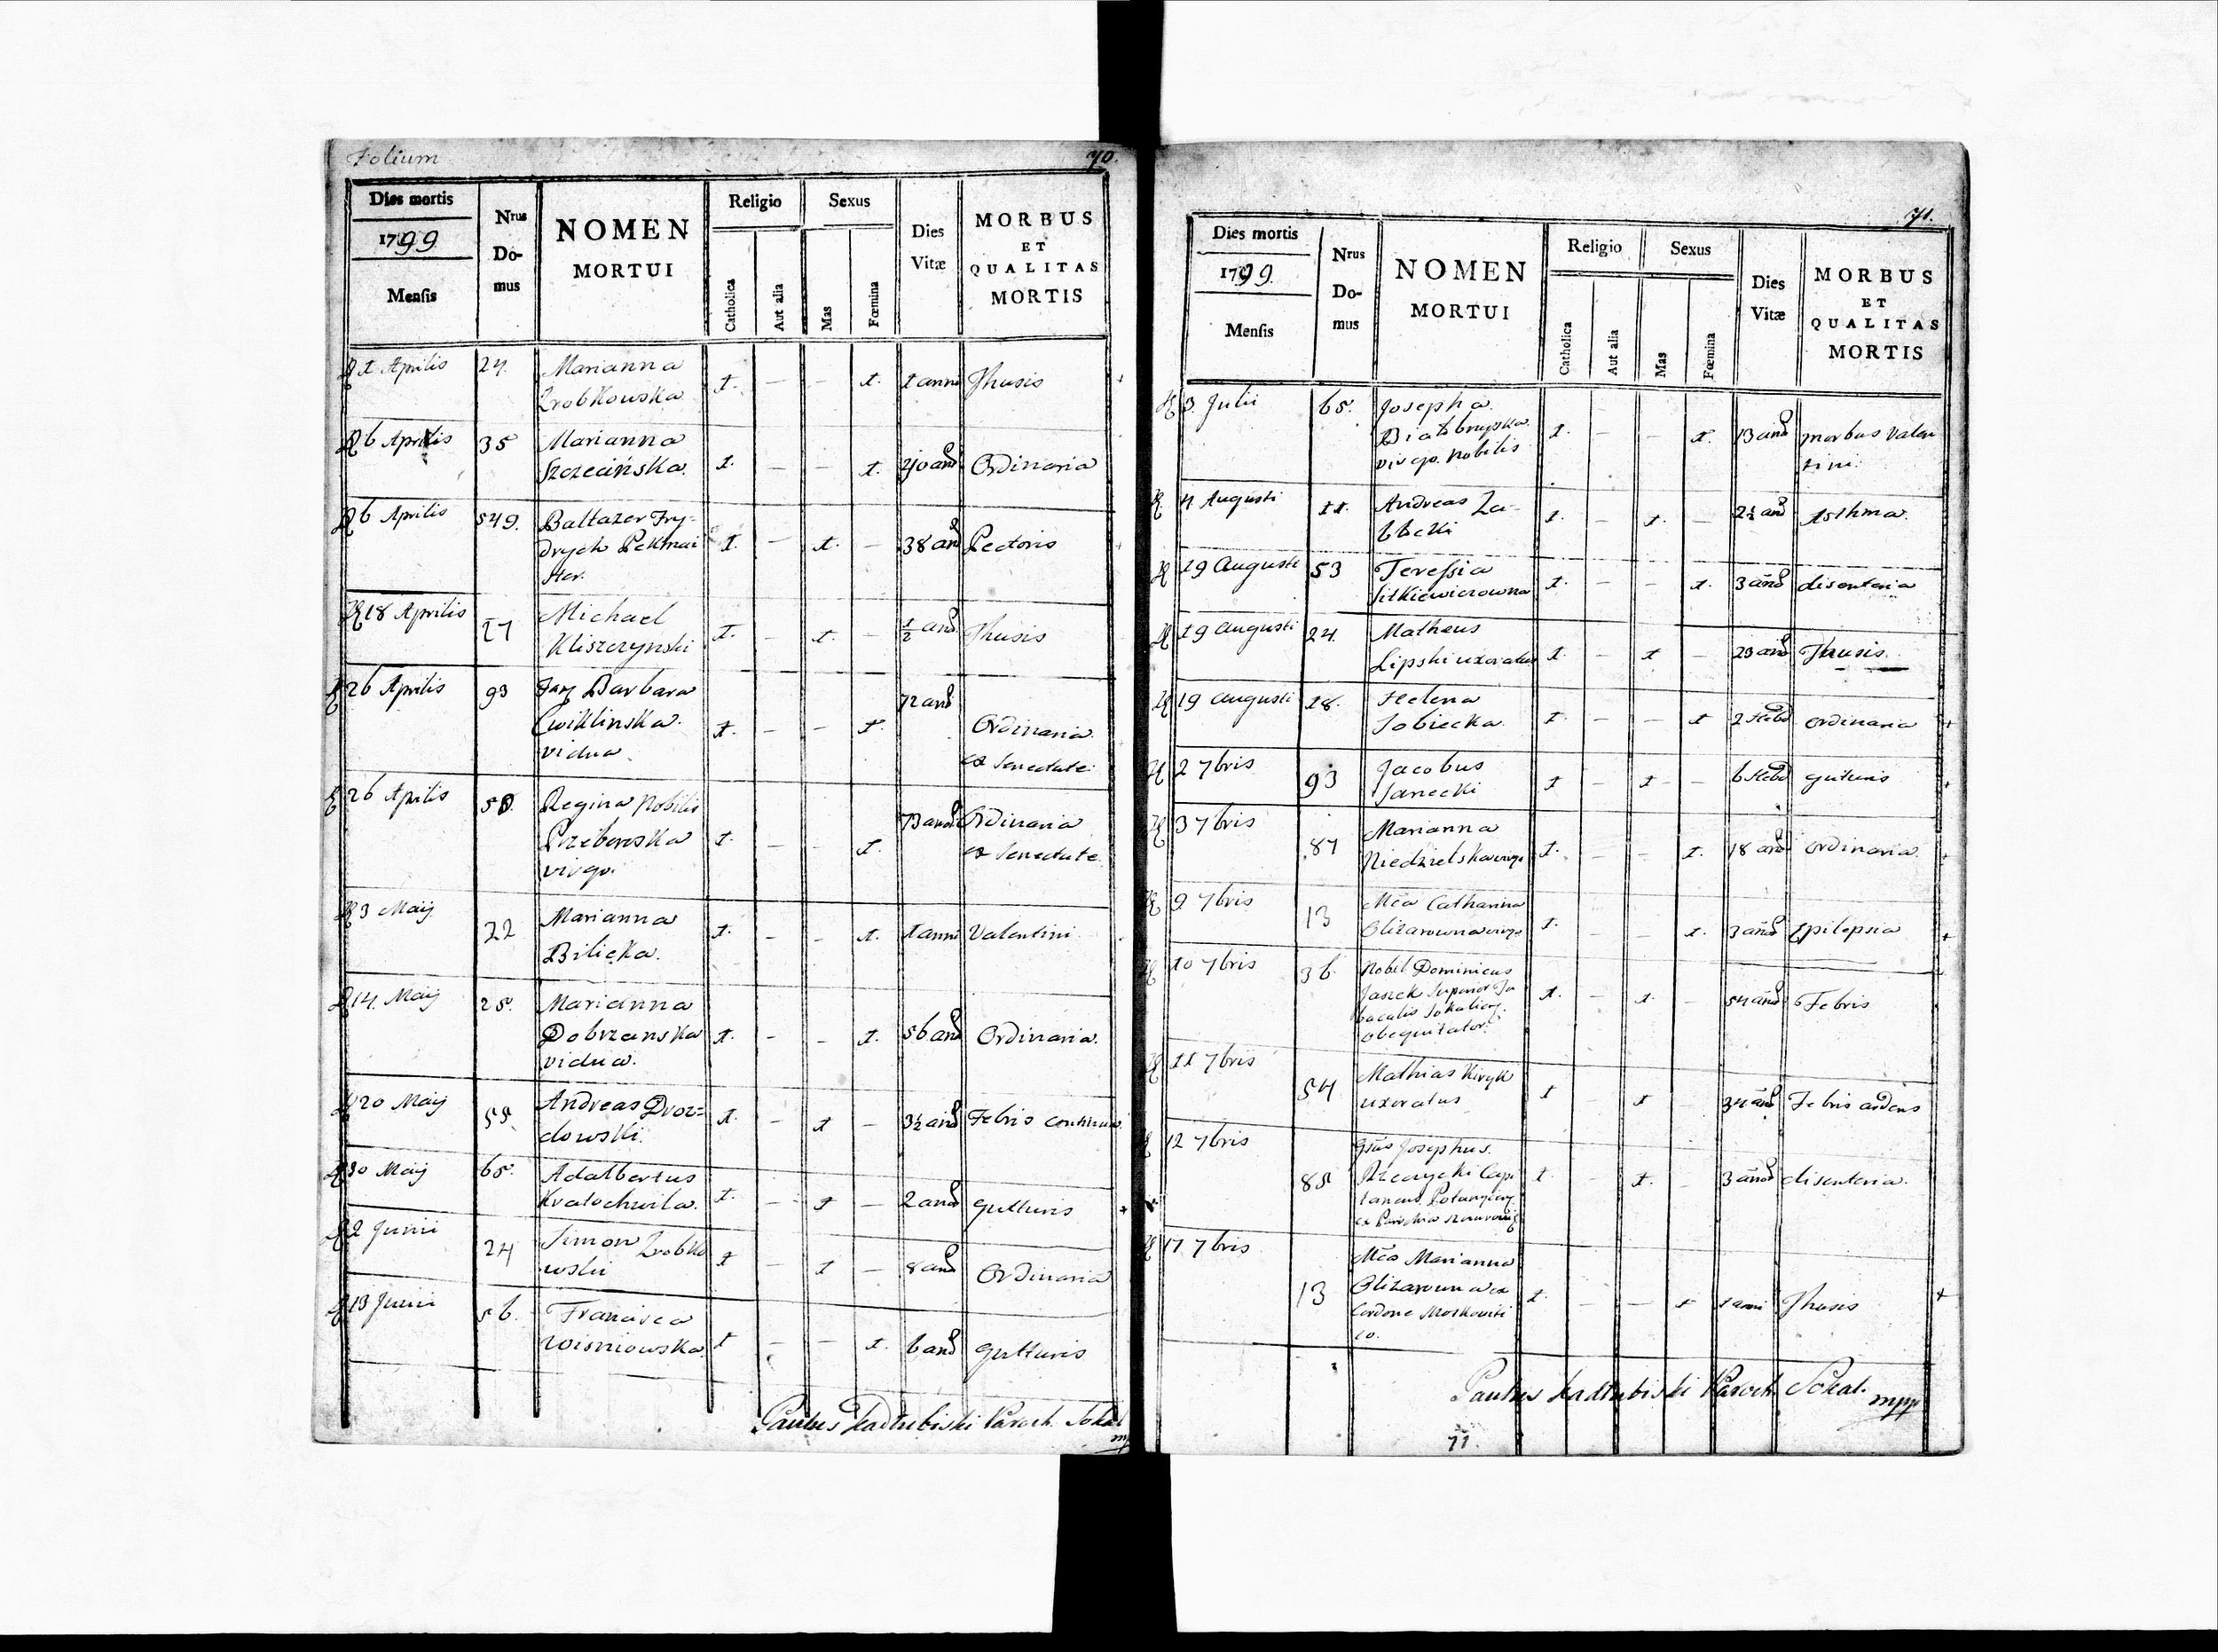 Folium 70.
Dies mortis
1799
Mensis
Nrus
Do-
mus
NOMEN
MORTUI
Religio
Catholica
Aut alia
Sexus
Mas
Fœmina
Dies
Vitæ
MORBUS
ET
QUALITAS
MORTIS
1 Aprilis 24. Marianna
Zrobkowska t. — — t. 1 anni Thusis
6 Aprilis 35 Marianna
Szczecińska t. — — t. and Ordinaria
6 Aprilis 549. Baltazer Fry-
drych Pekmai
ster. t. — t. — 38 and Pectoris
18 Aprilis 27 Michael
Kliszczynski t. — t. — ½ and Thusis
26 Aprilis 93 Barbara
Cwiklinska
vidua t. — — t. 72 and Ordinaria
ex Senectute
26 Aprilis 50. Regina Nobilis
Przeborowska
virgo. t. — — t. 73 and Ordinaria
ex Senectute
3 Maij 22 Marianna
Bilicka. t. — — t. 1 anni Valentini
14. Maij 25. Marianna
Dobrzanska
vidua. t. — — t. 56 and Ordinaria.
20 Maij 55. Andreas Droz=
dowski. t. — t — 3½ and Febris continua
30 Maij 65. Adalbertus
Kratochwila. t. — t — 2 and gutturis
2 Junii 24 Simon Zrobko
wski t — t — 8 and Ordinaria
13 Junii 56. Francisca
Wisniowska. t — — t. 6 and gutturis
Paulus Kadłubiski Paroch. Sokal
mp
71.
Dies mortis
1799.
Mensis
Nrus
Do-
mus
NOMEN
MORTUI
Religio
Catholica
Aut alia
Sexus
Mas
Fœmina
Dies
Vitæ
MORBUS
ET
QUALITAS
MORTIS
3. Julii 65. Josepha
Białobrzyska
virgo. nobilis t. — — t. 13 and morbus Valen
tini.
4 Augusti 11. Andreas Za-
błocki t. — t. — 2½ and Asthma.
19 Augusti 53 Teressia
Sitkiewiczowna t. — — t. 3 and disenteria
19 Augusti 24. Matheus
Lipski uxoratus t. — t — 23 and Thusis.
19 Augusti 18. Helena
Sobiecka. t. — — t 2 Hebd Ordinaria
2 7bris 93 Jacobus
Janecki t — t — 6 Hebd guturis
3 7bris 87 Marianna
Niedzielska virgo t. — — t. 18 and Ordinaria
9 7bris 13 Mca Catharina
Olizarowna virgo t. — — t. 3 and Epilepsia
10 7bris 36 Nobil Dominicus
Jaszek Superior Ta
bacalis Sokalien.
obequitator. t. — t. — 54 and Febris
11 7bris 54 Mathias Kiryk
uxoratus t — t — 34 and Febris ardens
12 7bris 85 Gsus Josephus.
Rzeczycki Cap
taneus
ex Parochia t. — t. — 3 and disenteria.
17 7bris 13 Mca Marianna
Olizarowna ex
Cordone Moskoviti
co. t. — — t 1 anni Thusis
Paulus Kadłubiski Paroch. Sokal. mpp
71.